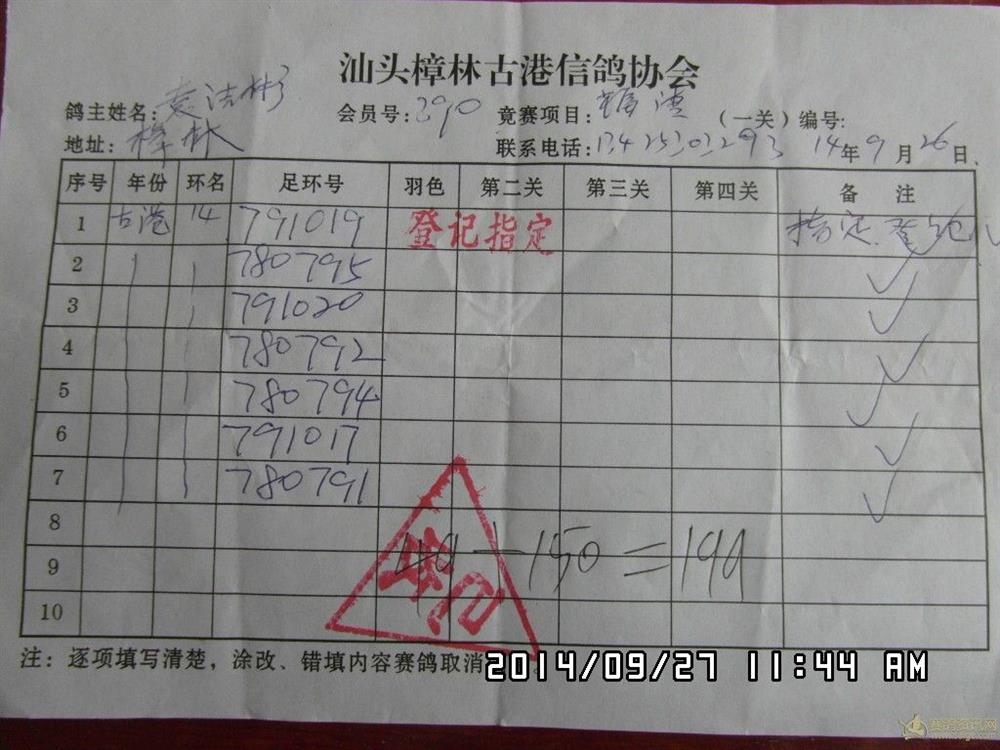 汕头樟林古港信鸽协会
鸽主姓名: 袁洁彬 会员号: 390 竟赛项目: (一关) 编号:
地址: 樟林 联系电话: 13425303293 14年9月26日.
序号 年份 环名 足环号 羽色 第二关 第三关 第四关 备 注
1 古港 14 791019 登记指定 指定
2 780795 ✓
3 791020 ✓
4 780792 ✓
5 780794 ✓
6 791017 ✓
7 780791 ✓
8
9 49+150=199
10
注: 逐项填写清楚，涂改、错填内容赛鸽取消
2014/09/27 11:44 AM
赛鸽资讯网